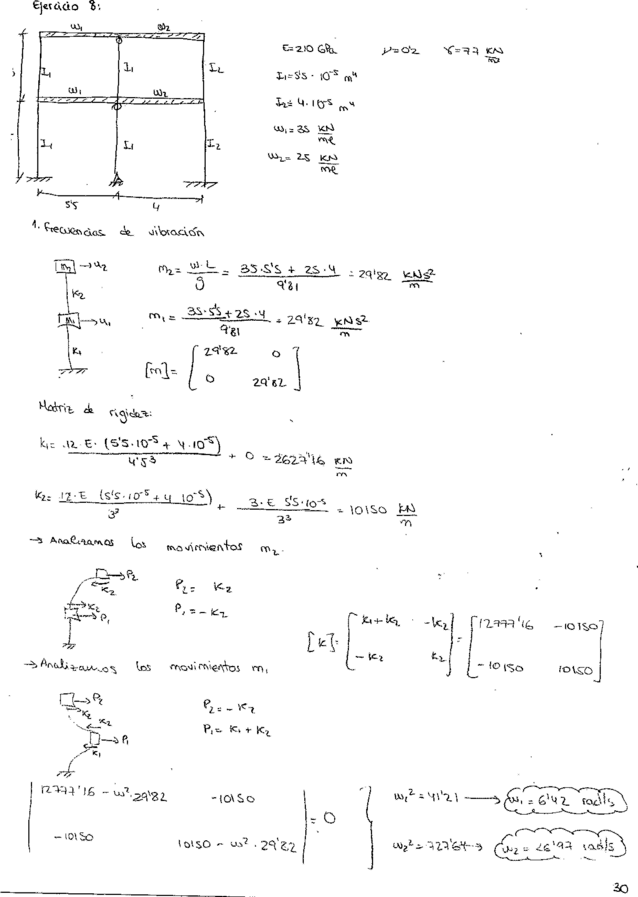 Ejercicio 8:
w₁ w₂
I₁ I₁ I₂
w₁ w₂
I₁ I₁ I₂
5'5 4
E=210 GPa ν=0'2 γ=77 KN/m³
I₁=5'5·10⁻⁵ m⁴
I₂= 4·10⁻⁵ m⁴
w₁=35 KN/ml
w₂= 25 KN/ml
1. Frecuencias de vibración
m₂ →u₂
K₂
m₁ →u₁
K₁
m₂= w·L/g = 35·5'5 + 25·4 / 9'81 = 29'82 KNs²/m
m₁= 35·5'5+25·4 / 9'81 = 29'82 KNs²/m
[m]= [ 29'82 0
0 29'82 ]
Matriz de rigidez:
k₁= 12·E·(5'5·10⁻⁵ + 4·10⁻⁵) / 4'5³ + 0 = 2627'16 KN/m
K₂= 12·E (5'5·10⁻⁵+4 10⁻⁵) / 3³ + 3·E 5'5·10⁻⁵ / 3³ = 10150 KN/m
→ Analizamos los movimientos m₂.
→P₂
K₂
K₂
→P₁
P₂= K₂
P₁=-K₂
[K]= [ K₁+K₂ -K₂
-K₂ K₂ ] = [ 12777'16 -10150
-10150 10150 ]
→ Analizamos los movimientos m₁
→P₂
K₂ K₂
→P₁
K₁
P₂=-K₂
P₁= K₁+K₂
| 12777'16 - ω²·29'82 -10150
-10150 10150 - ω²·29'82 | = 0
ω₁²=41'21 → ω₁=6'42 rad/s
ω₂²=727'64→ ω₂=26'97 rad/s
30